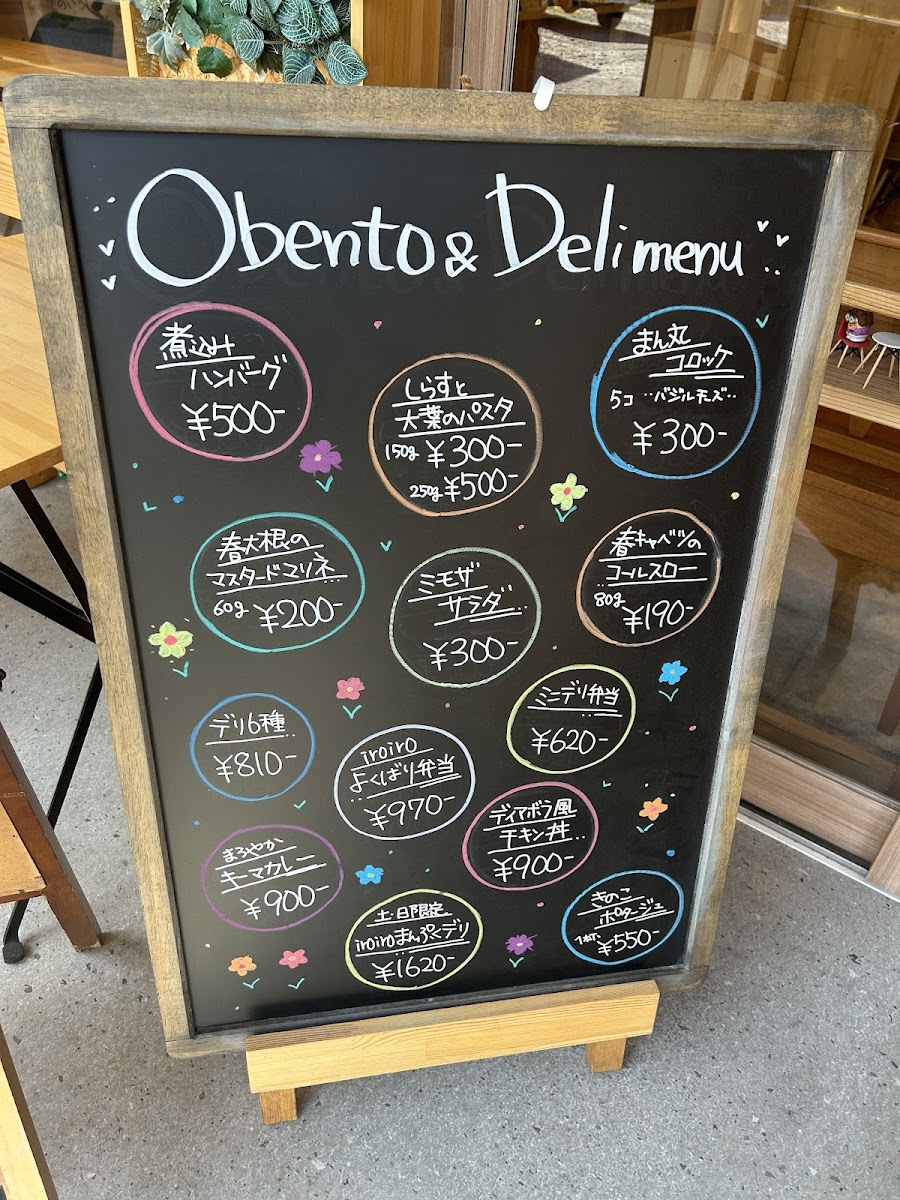 Obento & Deli menu
煮込み
ハンバーグ
¥500-
しらすと
大葉のパスタ
150g ¥300-
250g ¥500-
まん丸
コロッケ
5コ ‥バジルチーズ‥
¥300-
春大根の
マスタードマリネ
60g ¥200-
ミモザ
サラダ
¥300-
春キャベツの
コールスロー
80g ¥190-
デリ6種
¥810-
iroiro
よくばり弁当
¥970-
ミニデリ弁当
¥620-
ディアボラ風
チキン丼
¥900-
まろやか
キーマカレー
¥900-
土・日限定
iroiroまんぷくデリ
¥1620-
きのこ
ポタージュ
¥550-